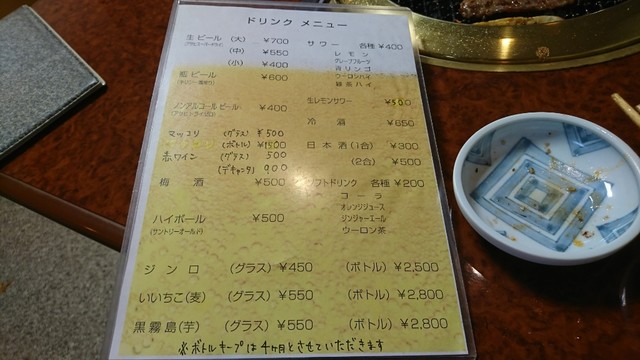 ドリンク メニュー
生ビール (大) ¥700
(中) ¥550
(小) ¥400
瓶ビール ¥600
ノンアルコールビール ¥400
マッコリ (グラス) ¥500
(ボトル) ¥1500
赤ワイン (グラス) 500
(デキャンタ) 900
梅 酒 ¥500
ハイボール ¥500
(サントリーオールド)
サワー 各種 ¥400
レモン
グレープフルーツ
青リンゴ
ウーロンハイ
緑茶ハイ
生レモンサワー ¥500
冷 酒 ¥650
日本酒 (1合) ¥300
(2合) ¥500
ソフトドリンク 各種 ¥200
コーラ
オレンジジュース
ジンジャーエール
ウーロン茶
ジンロ (グラス) ¥450 (ボトル) ¥2,500
いいちこ(麦) (グラス) ¥550 (ボトル) ¥2,800
黒霧島(芋) (グラス) ¥550 (ボトル) ¥2,800
※ボトルキープは4ヶ月とさせていただきます